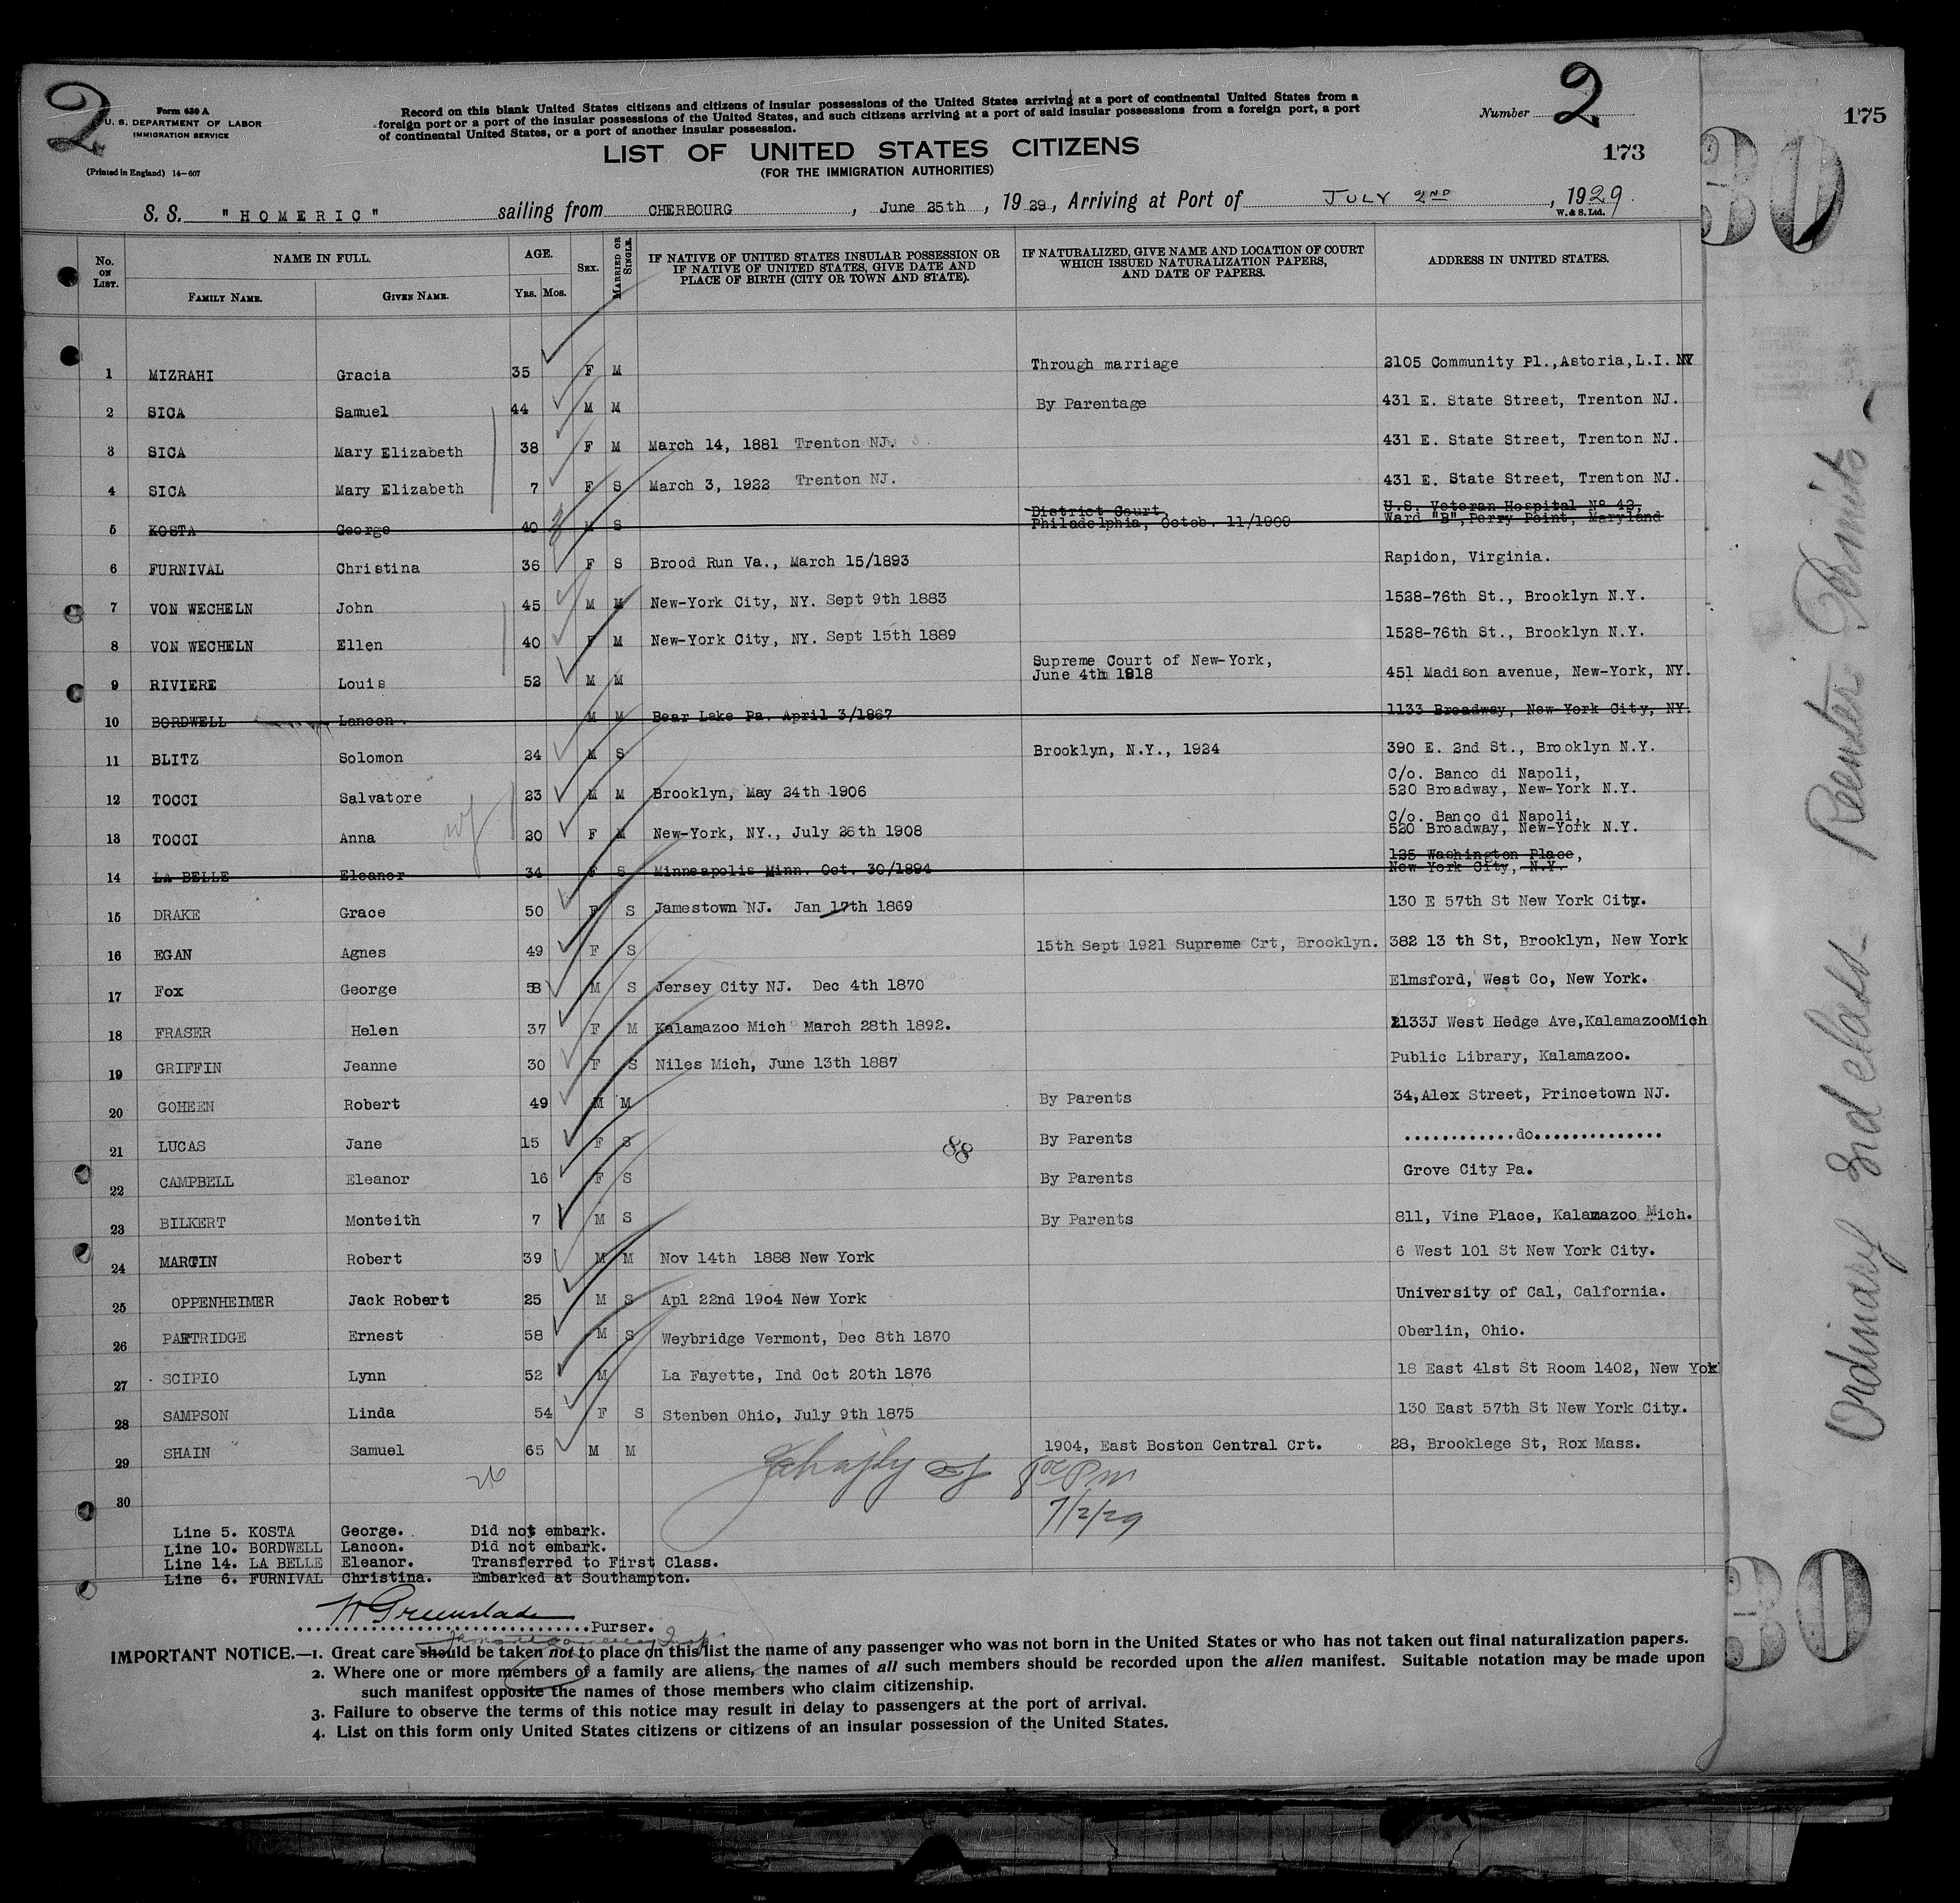 2
Form 630 A
U. S. DEPARTMENT OF LABOR
IMMIGRATION SERVICE
(Printed in England) 14-607
Record on this blank United States citizens and citizens of insular possessions of the United States arriving at a port of continental United States from a
foreign port or a port of the insular possessions of the United States, and such citizens arriving at a port of said insular possessions from a foreign port, a port
of continental United States, or a port of another insular possession.
Number 2
175
LIST OF UNITED STATES CITIZENS
173
(FOR THE IMMIGRATION AUTHORITIES)
30
S. S. "HOMERIC" sailing from CHERBOURG, June 25th, 1929, Arriving at Port of JULY 2ND, 1929
W. & S. Ltd.
No. ON LIST. NAME IN FULL. FAMILY NAME. GIVEN NAME. AGE. Yrs. Mos. SEX. MARRIED OR SINGLE. IF NATIVE OF UNITED STATES INSULAR POSSESSION OR IF NATIVE OF UNITED STATES, GIVE DATE AND PLACE OF BIRTH (CITY OR TOWN AND STATE). IF NATURALIZED, GIVE NAME AND LOCATION OF COURT WHICH ISSUED NATURALIZATION PAPERS, AND DATE OF PAPERS. ADDRESS IN UNITED STATES.
1 MIZRAHI Gracia 35 F M Through marriage 2105 Community Pl.,Astoria,L.I. NY
2 SICA Samuel 44 M M By Parentage 431 E. State Street, Trenton NJ.
3 SICA Mary Elizabeth 38 F M March 14, 1881 Trenton NJ. 431 E. State Street, Trenton NJ.
4 SICA Mary Elizabeth 7 F S March 3, 1922 Trenton NJ. 431 E. State Street, Trenton NJ.
5 KOSTA George 40 M S District Court, Philadelphia, Octob. 11/1909 U.S. Veteran Hospital Nº 42, Ward "B",Perry Point, Maryland
6 FURNIVAL Christina 36 F S Brood Run Va., March 15/1893 Rapidon, Virginia.
7 VON WECHELN John 45 M M New-York City, NY. Sept 9th 1883 1528-76th St., Brooklyn N.Y.
8 VON WECHELN Ellen 40 F M New-York City, NY. Sept 15th 1889 1528-76th St., Brooklyn N.Y.
9 RIVIERE Louis 52 M M Supreme Court of New-York, June 4th 1918 451 Madison avenue, New-York, NY.
10 BORDWELL Lancon. M M Bear Lake Pa. April 3/1867 1133 Broadway, New-York City, NY.
11 BLITZ Solomon 24 M S Brooklyn, N.Y., 1924 390 E. 2nd St., Brooklyn N.Y.
12 TOCCI Salvatore 23 M M Brooklyn, May 24th 1906 C/o. Banco di Napoli, 520 Broadway, New-York N.Y.
13 TOCCI Anna 20 F M New-York, NY., July 26th 1908 C/o. Banco di Napoli, 520 Broadway, New-York N.Y.
14 LA BELLE Eleanor 34 F S Minneapolis Minn. Oct. 30/1894 125 Washington Place, New York City, N.Y.
15 DRAKE Grace 50 F S Jamestown NJ. Jan 17th 1869 130 E 57th St New York City.
16 EGAN Agnes 49 F S 15th Sept 1921 Supreme Crt, Brooklyn. 382 13 th St, Brooklyn, New York
17 Fox George 58 M S Jersey City NJ. Dec 4th 1870 Elmsford, West Co, New York.
18 FRASER Helen 37 F M Kalamazoo Mich March 28th 1892. 1133J West Hedge Ave,KalamazooMich
19 GRIFFIN Jeanne 30 F S Niles Mich, June 13th 1887 Public Library, Kalamazoo.
20 GOHEEN Robert 49 M M By Parents 34,Alex Street, Princetown NJ.
21 LUCAS Jane 15 F S 88 By Parents ............do..............
22 CAMPBELL Eleanor 16 F S By Parents Grove City Pa.
23 BILKERT Monteith 7 M S By Parents 811, Vine Place, Kalamazoo Mich.
24 MARTIN Robert 39 M M Nov 14th 1888 New York 6 West 101 St New York City.
25 OPPENHEIMER Jack Robert 25 M S Apl 22nd 19o4 New York University of Cal, Calfornia.
26 PARTRIDGE Ernest 58 M S Weybridge Vermont, Dec 8th 1870 Oberlin, Ohio.
27 SCIPIO Lynn 52 M La Fayette, Ind Oct 20th 1876 18 East 41st St Room 1402, New Yok
28 SAMPSON Linda 54 F S Stenben Ohio, July 9th 1875 130 East 57th St New York City.
29 SHAIN Samuel 65 M M 1904, East Boston Central Crt. 28, Brooklege St, Rox Mass.
26
7/2/29
30
Line 5. KOSTA George. Did not embark.
Line 10. BORDWELL Lancon. Did not embark.
Line 14. LA BELLE Eleanor. Transferred to First Class.
Line 6. FURNIVAL Christina. Embarked at Southampton.
W Greenslade Purser.
IMPORTANT NOTICE.—1. Great care should be taken not to place on this list the name of any passenger who was not born in the United States or who has not taken out final naturalization papers.
2. Where one or more members of a family are aliens, the names of all such members should be recorded upon the alien manifest. Suitable notation may be made upon
such manifest opposite the names of those members who claim citizenship.
3. Failure to observe the terms of this notice may result in delay to passengers at the port of arrival.
4. List on this form only United States citizens or citizens of an insular possession of the United States.
Ordinary 2nd class - Reenter Permits -
30